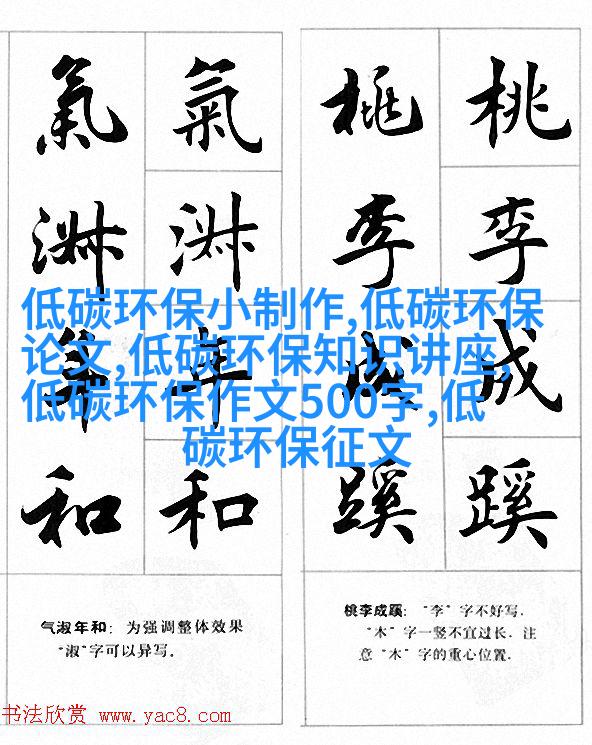 桃李成蹊
桃李成蹊
氣淑年和
氣淑年和
低碳环保小制作,低碳环保
论文,低碳环保知识讲座,
低碳环保作文500字,低
碳环保征文
气淑年和：为强调整体效果
“淑”字可以异写。
桃李成蹊：“李”字不好写.
“木”字一竖不宜过长. 注
意“木”字的重心位置.
书法欣赏 www.yac8.com